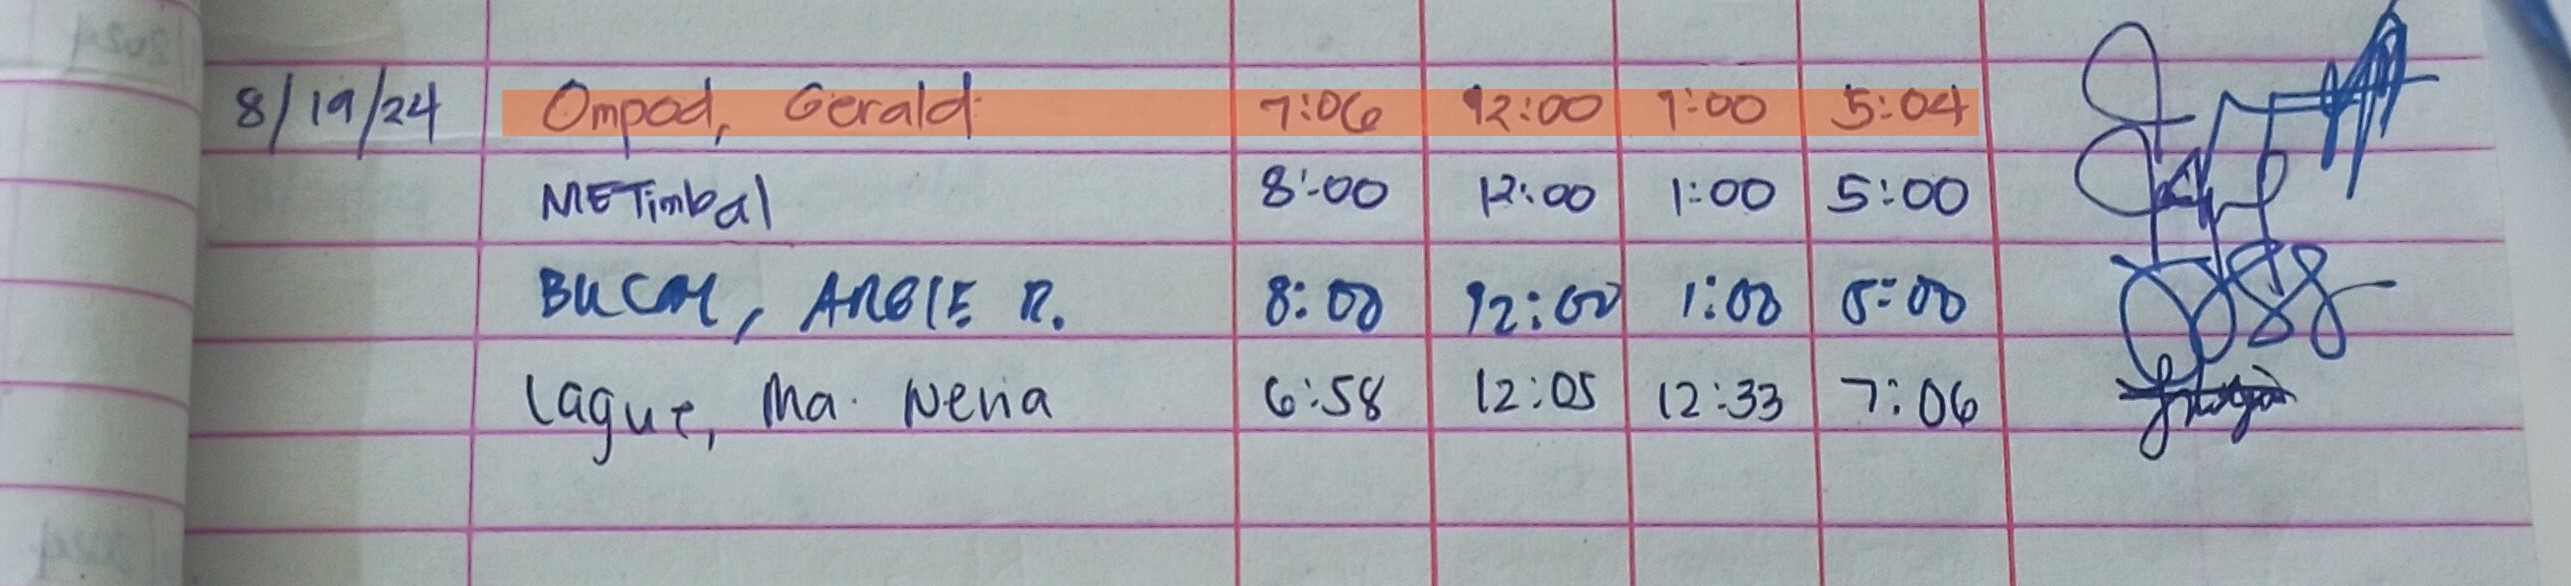 8/19/24 Ompad, Gerald 7:06 12:00 1:00 5:04
METimbal 8:00 12:00 1:00 5:00
BUCAL, ARGIE R. 8:00 12:00 1:00 5:00
Lague, Ma. Neria 6:58 12:05 12:33 7:06